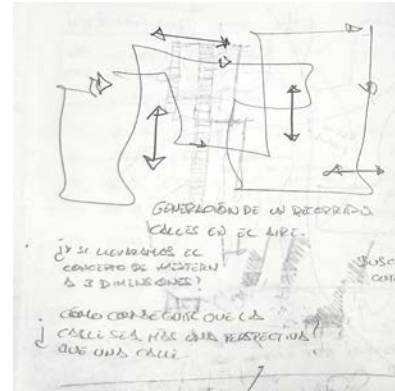 GENERACIÓN DE UN RECORRIDO
CALLES EN EL AIRE.
¿Y SI LLEVARAMOS EL
CONCEPTO DE WESTERN
A 3 DIMENSIONES?
¿CÓMO CONSEGUIR QUE LA
CALLE SEA MÁS UNA PERSPECTIVA
QUE UNA CALLE.